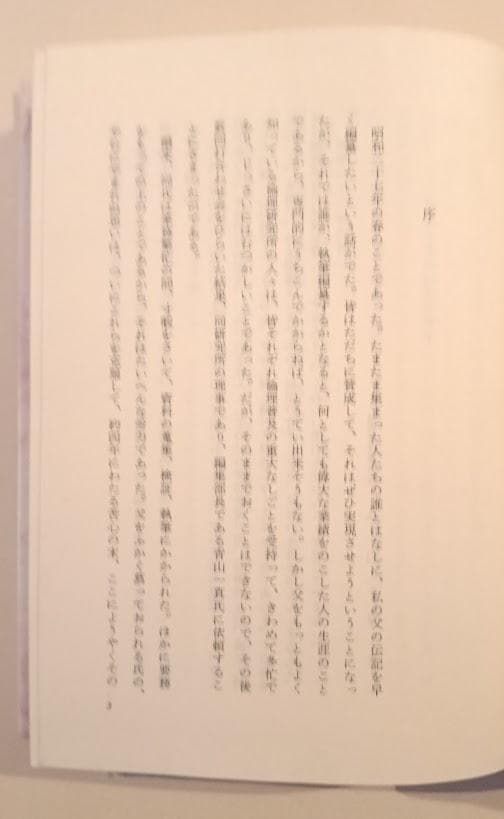 序
昭和三十七年の春のことであった。たまたま集まった人たちの誰とはなしに、私の父の伝記を早
く編纂したいという話がでた。皆はただちに賛成して、それはぜひ実現させようということになっ
たが、それでは誰が、執筆編纂するかとなると、何としても偉大な業績をのこした人の生涯のこと
であるから、専門的にうちこんでかからねば、とうてい出来そうもない。しかし父をもっともよく
知っている倫理研究所の人々は、皆それぞれ倫理普及の重大なしごとを受持って、きわめて多忙で
あり、じっさいにはむつかしいことであった。だが、そのままでおくことはできないので、その後
結果、同研究所の理事であり、編集部長である青山一真氏に依頼するこ
とにきまったのである。
寸暇をさいて、資料の蒐集、検討、執筆にかかられた。ほかに要務
のことであるから、それはたいへんな努力であった。父をふかく慕っておられる氏の、
約四年にわたる苦心の末、ここにようやくその
3